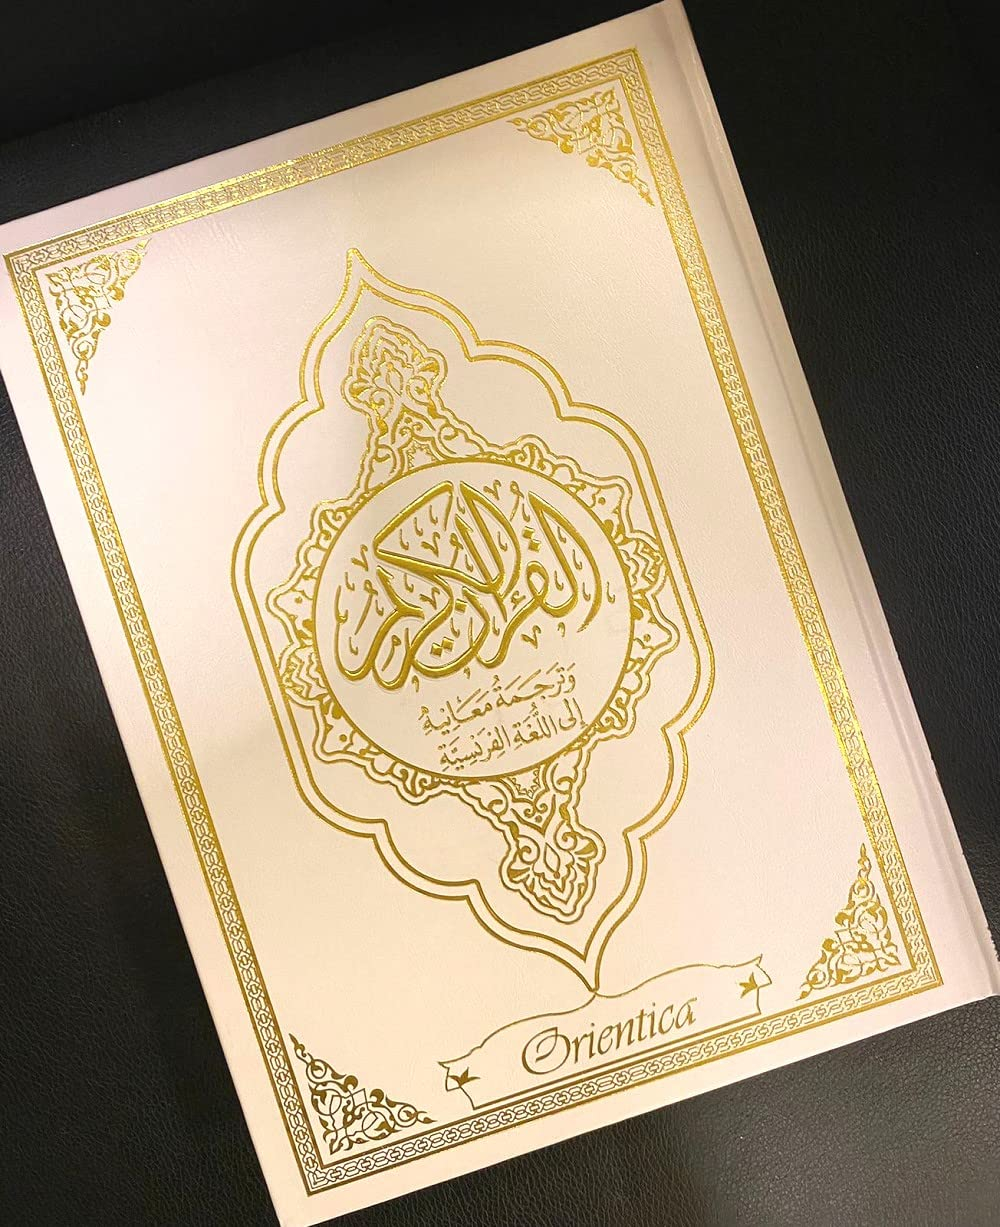 القرآن الكريم
وَتَرجَمَةُ مَعَانِيهِ
إِلى اللُّغَةِ الفَرَنْسِيَّةِ
Orientica